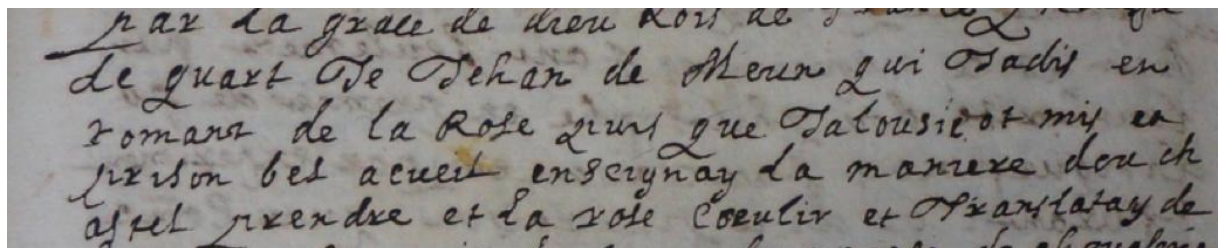 par La grace de dieu Rois de
Le quart Je Jehan de Meun qui Jadis en
romant de la Rose puis que Jalousie ot mis en
prison bel acueil enseignay La maniere dou ch
astel prendre et La rose Coeulir et Translatay de